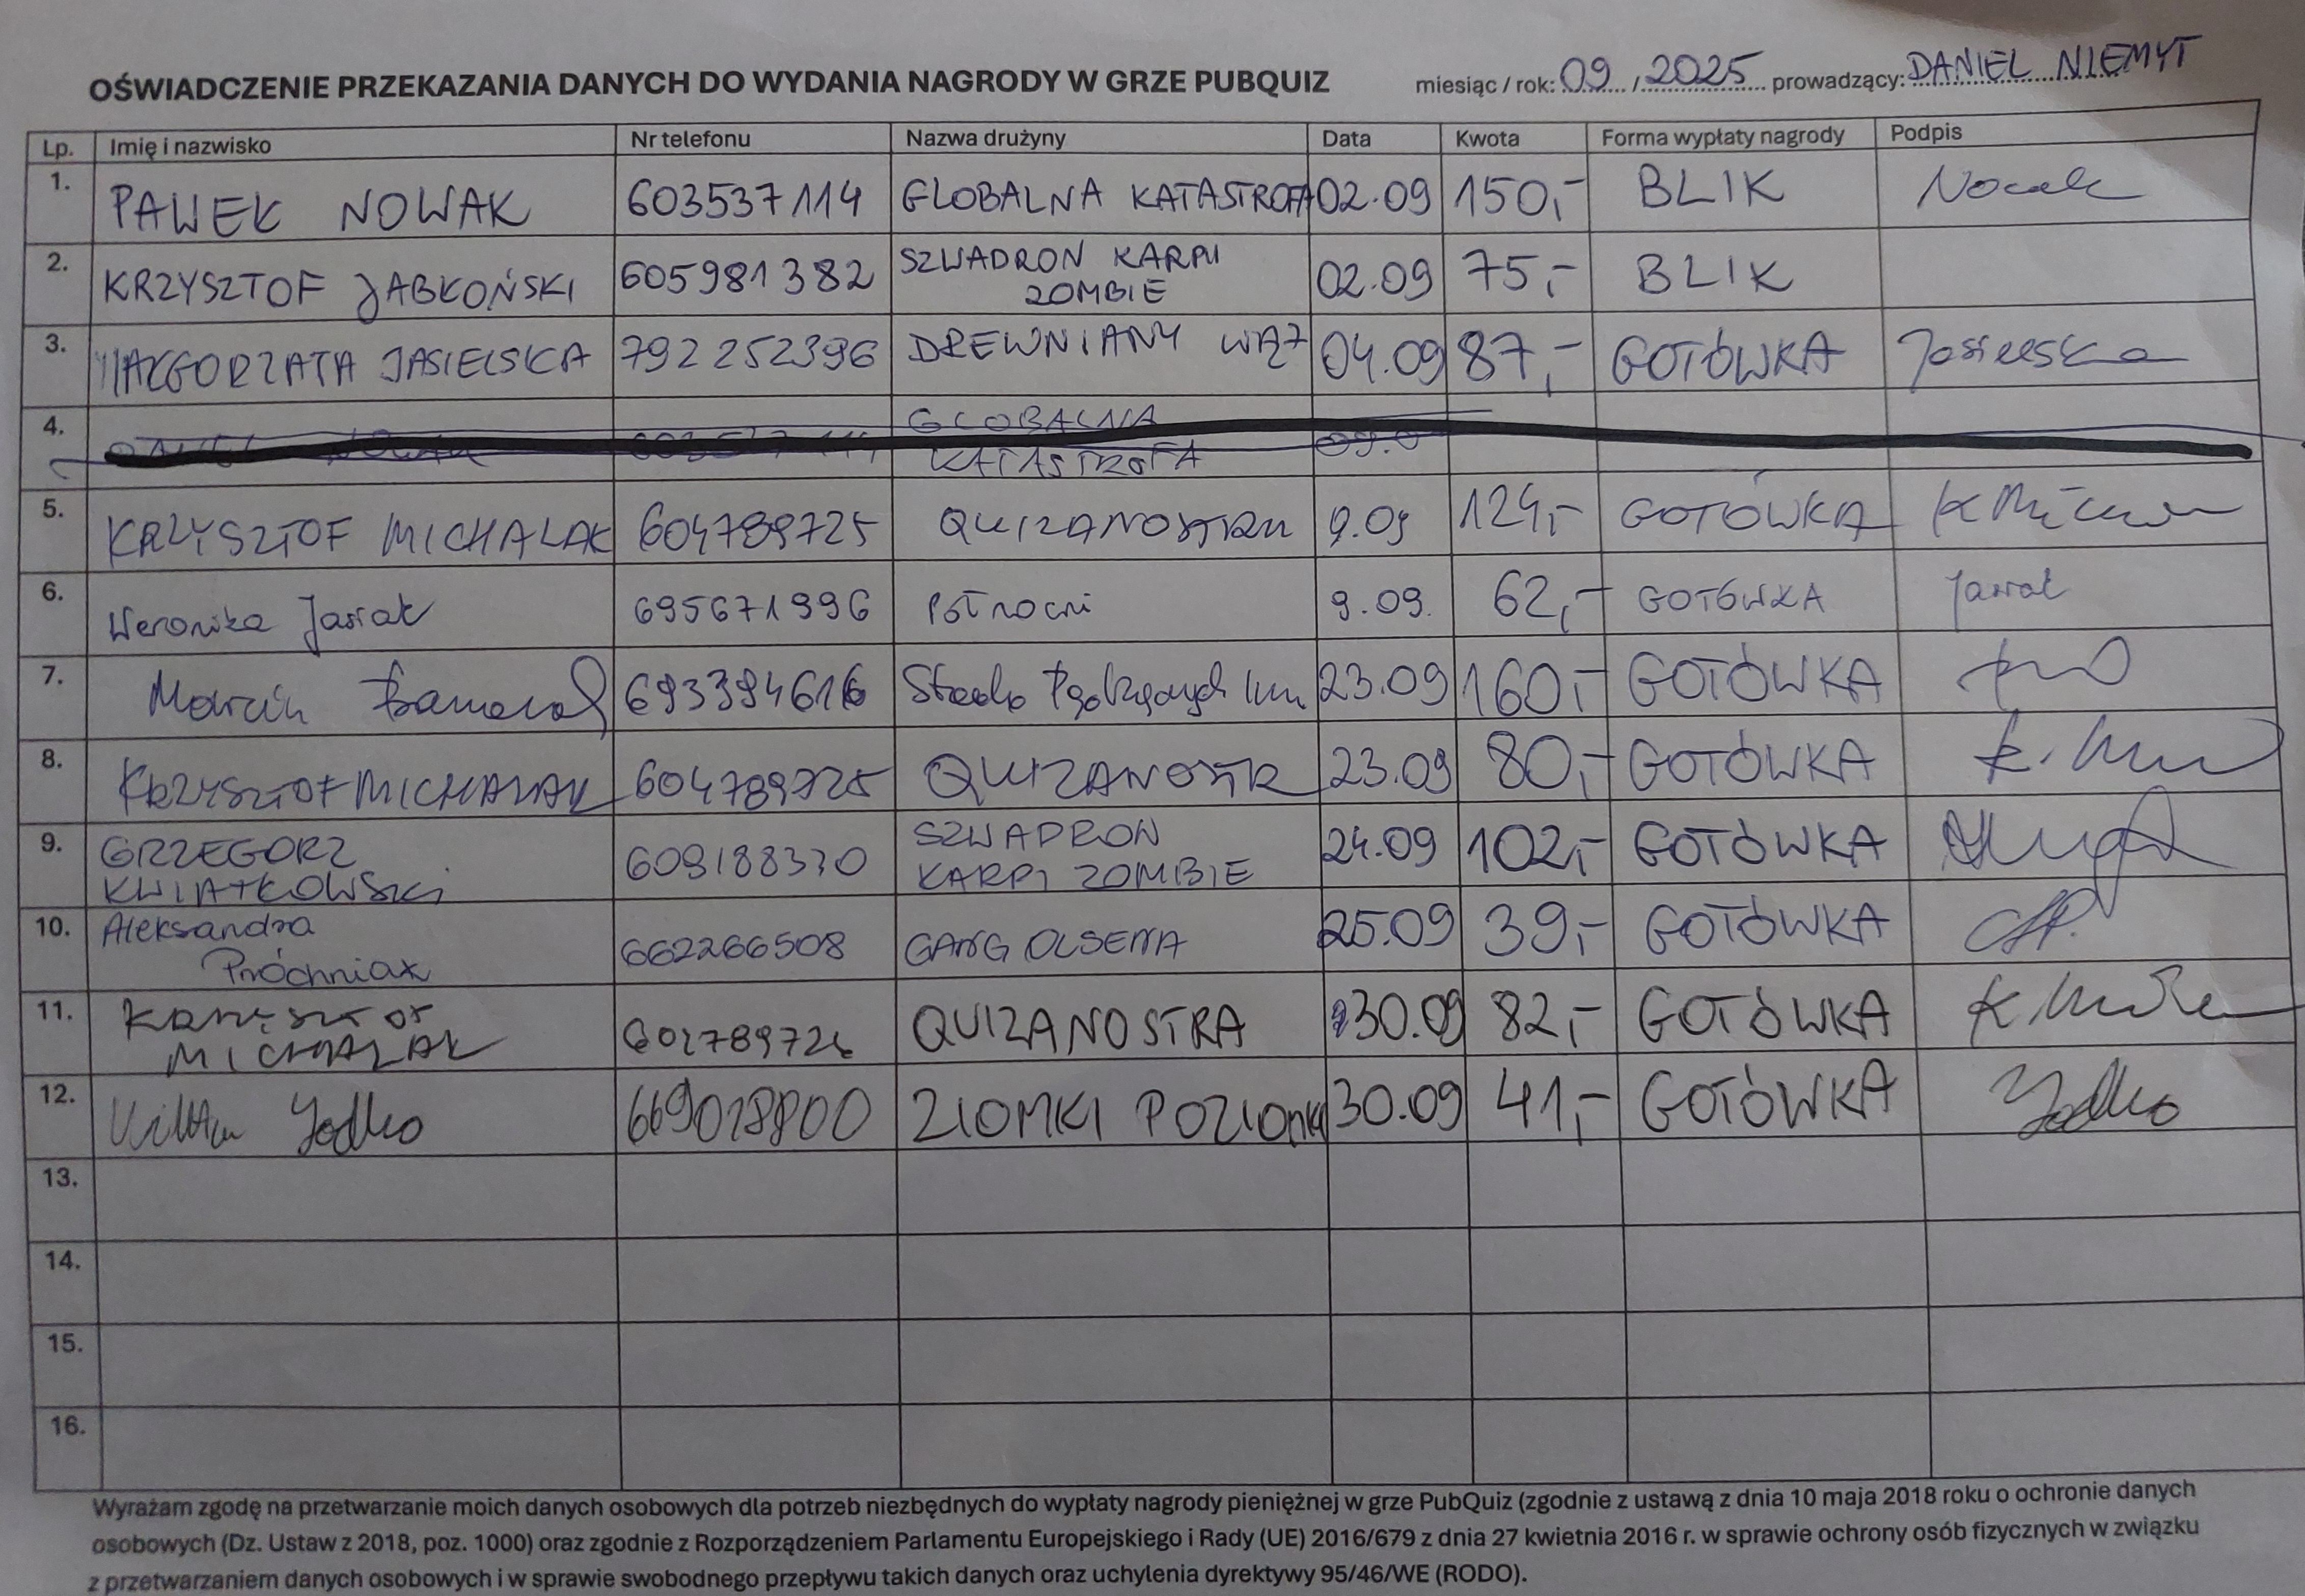 OŚWIADCZENIE PRZEKAZANIA DANYCH DO WYDANIA NAGRODY W GRZE PUBQUIZ miesiąc / rok: 09 / 2025 prowadzący: DANIEL NIEMYT
Lp. Imię i nazwisko Nr telefonu Nazwa drużyny Data Kwota Forma wypłaty nagrody Podpis
1. PAWEŁ NOWAK 603537114 GLOBALNA KATASTROFA 02.09 150,- BLIK Nowak
2. KRZYSZTOF JABŁOŃSKI 605981382 SZWADRON KARPI ZOMBIE 02.09 75,- BLIK
3. MAŁGORZATA JASIELSKA 792252396 DREWNIANY WĄŻ 04.09 87,- GOTÓWKA Jasielska
4. GLOBALNA KATASTROFA
5. KRZYSZTOF MICHALAK 604789725 QUIZANOSTRA 9.09 124,- GOTÓWKA
6. Weronika 695671996 Północni 9.09. 62,- GOTÓWKA
7. Marcin 693394616 Stado 23.09 160,- GOTÓWKA
8. KRZYSZTOF MICHALAK 604789725 QUIZANOSTR 23.09 80,- GOTÓWKA
9. GRZEGORZ KWIATKOWSKI 609188330 SZWADRON KARPI ZOMBIE 24.09 102,- GOTÓWKA
10. Aleksandra Próchniak 662266508 GANG OLSENA 25.09 39,- GOTÓWKA
11. KRZYSZTOF MICHALAK QUIZANOSTRA 30.09 82,- GOTÓWKA
12. Jodko ZIOMKI POZIOMKI 30.09 41,- GOTÓWKA Jodko
13.
14.
15.
16.
Wyrażam zgodę na przetwarzanie moich danych osobowych dla potrzeb niezbędnych do wypłaty nagrody pieniężnej w grze PubQuiz (zgodnie z ustawą z dnia 10 maja 2018 roku o ochronie danych
osobowych (Dz. Ustaw z 2018, poz. 1000) oraz zgodnie z Rozporządzeniem Parlamentu Europejskiego i Rady (UE) 2016/679 z dnia 27 kwietnia 2016 r. w sprawie ochrony osób fizycznych w związku
z przetwarzaniem danych osobowych i w sprawie swobodnego przepływu takich danych oraz uchylenia dyrektywy 95/46/WE (RODO).